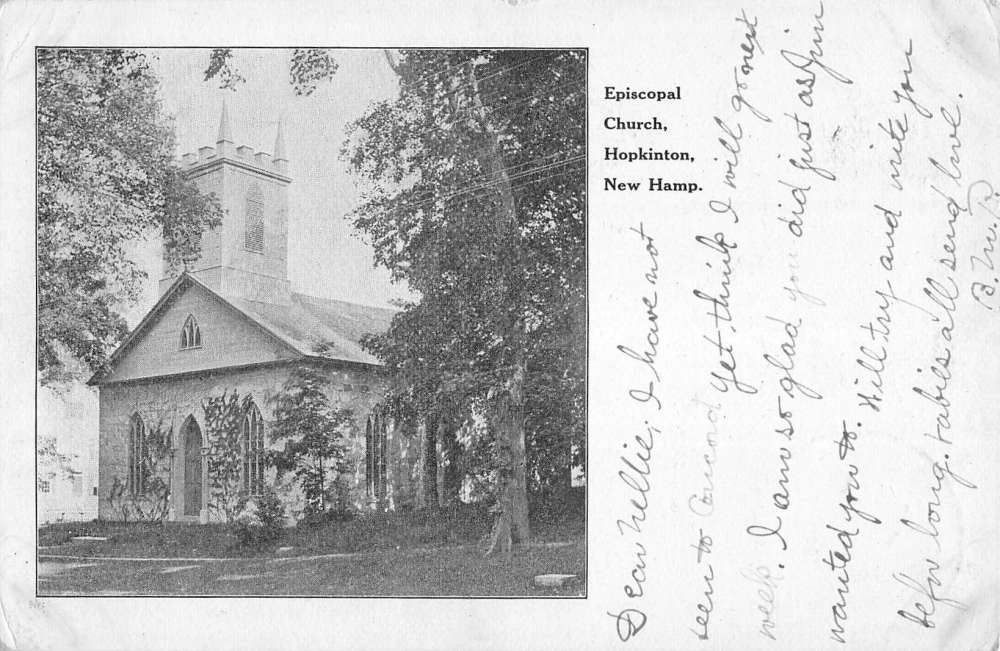 Episcopal
Church,
Hopkinton,
New Hamp.
Dear Nellie, I have not
seen to Concord yet think I will go next
week. I am so glad you did just as Jim
wanted you to. Will try and write you
before long. all send love.
B. M. P.